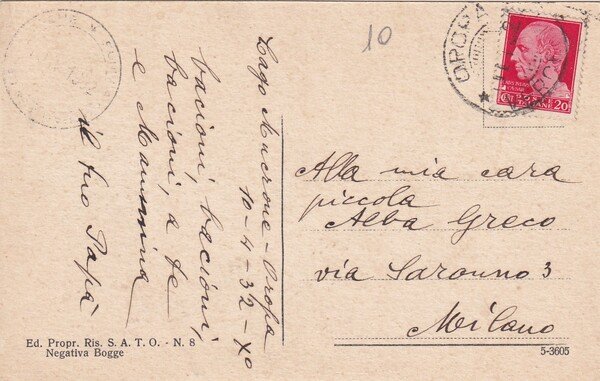 10
Lago Mucrone - Oropa
10-4-32-X°
bacioni, bacioni,
bacioni, a te
e Mammina
il tuo Papà
OROPA
20
Alla mia cara
piccola
Alba Greco
via Saronno 3
Milano
Ed. Propr. Ris. S. A. T. O. - N. 8
Negativa Bogge
5-3605